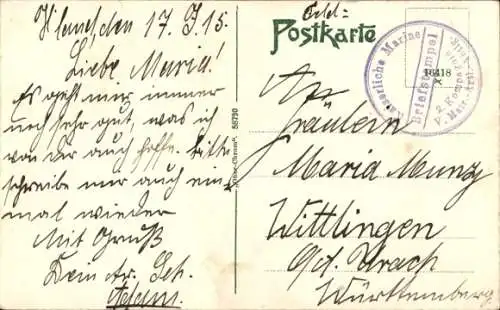 den 17. 3. 15.
Liebe Maria!
Es geht mir immer
noch sehr gut, was ich
von Dir auch hoffe. Bitte
schreibe mir auch ein-
mal wieder
Mit Gruß
Dein
Adam.
Feld-
Postkarte
Kaiserliche Marine
Briefstempel
2. Komp.
16418
58790
An
Fräulein
Maria Munz
Wittlingen
O/A. Urach
Württemberg